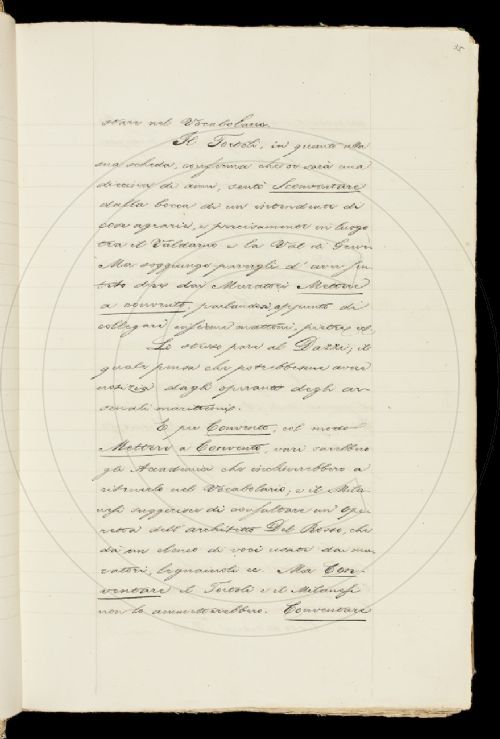 35
stare nel Vocabolario.
Il Tortoli, in quanto alla
sua scheda, conferma che or sarà una
diecina di anni, sentì Sconventare
dalla bocca di un intendente di
cose agrarie, e precisamente in luogo
tra il Valdarno e la Val di
Ma soggiunge parergli d'aver
dire dai Muratori Mettere
a convento, parlandosi appunto di
collegare insieme mattoni, pietre ec.
Lo stesso pare al Dazzi; il
quale pensa che potrebbesene aver
notizia dagli operanti degli ar-
senali marittimi.
E per Convento, col modo
Mettere a Convento, vari sarebbero
gli Accademici che inchinerebbero a
ritenerlo nel Vocabolario; e il Mila-
nesi suggerisce di consultare un'Ope-
retta dell'architetto Del Rosso, che
dà un elenco di voci usate dai mu-
ratori, legnaiuoli ec. Ma Con-
ventare il Tortoli e il Milanesi
non lo ammetterebbero. Conventare